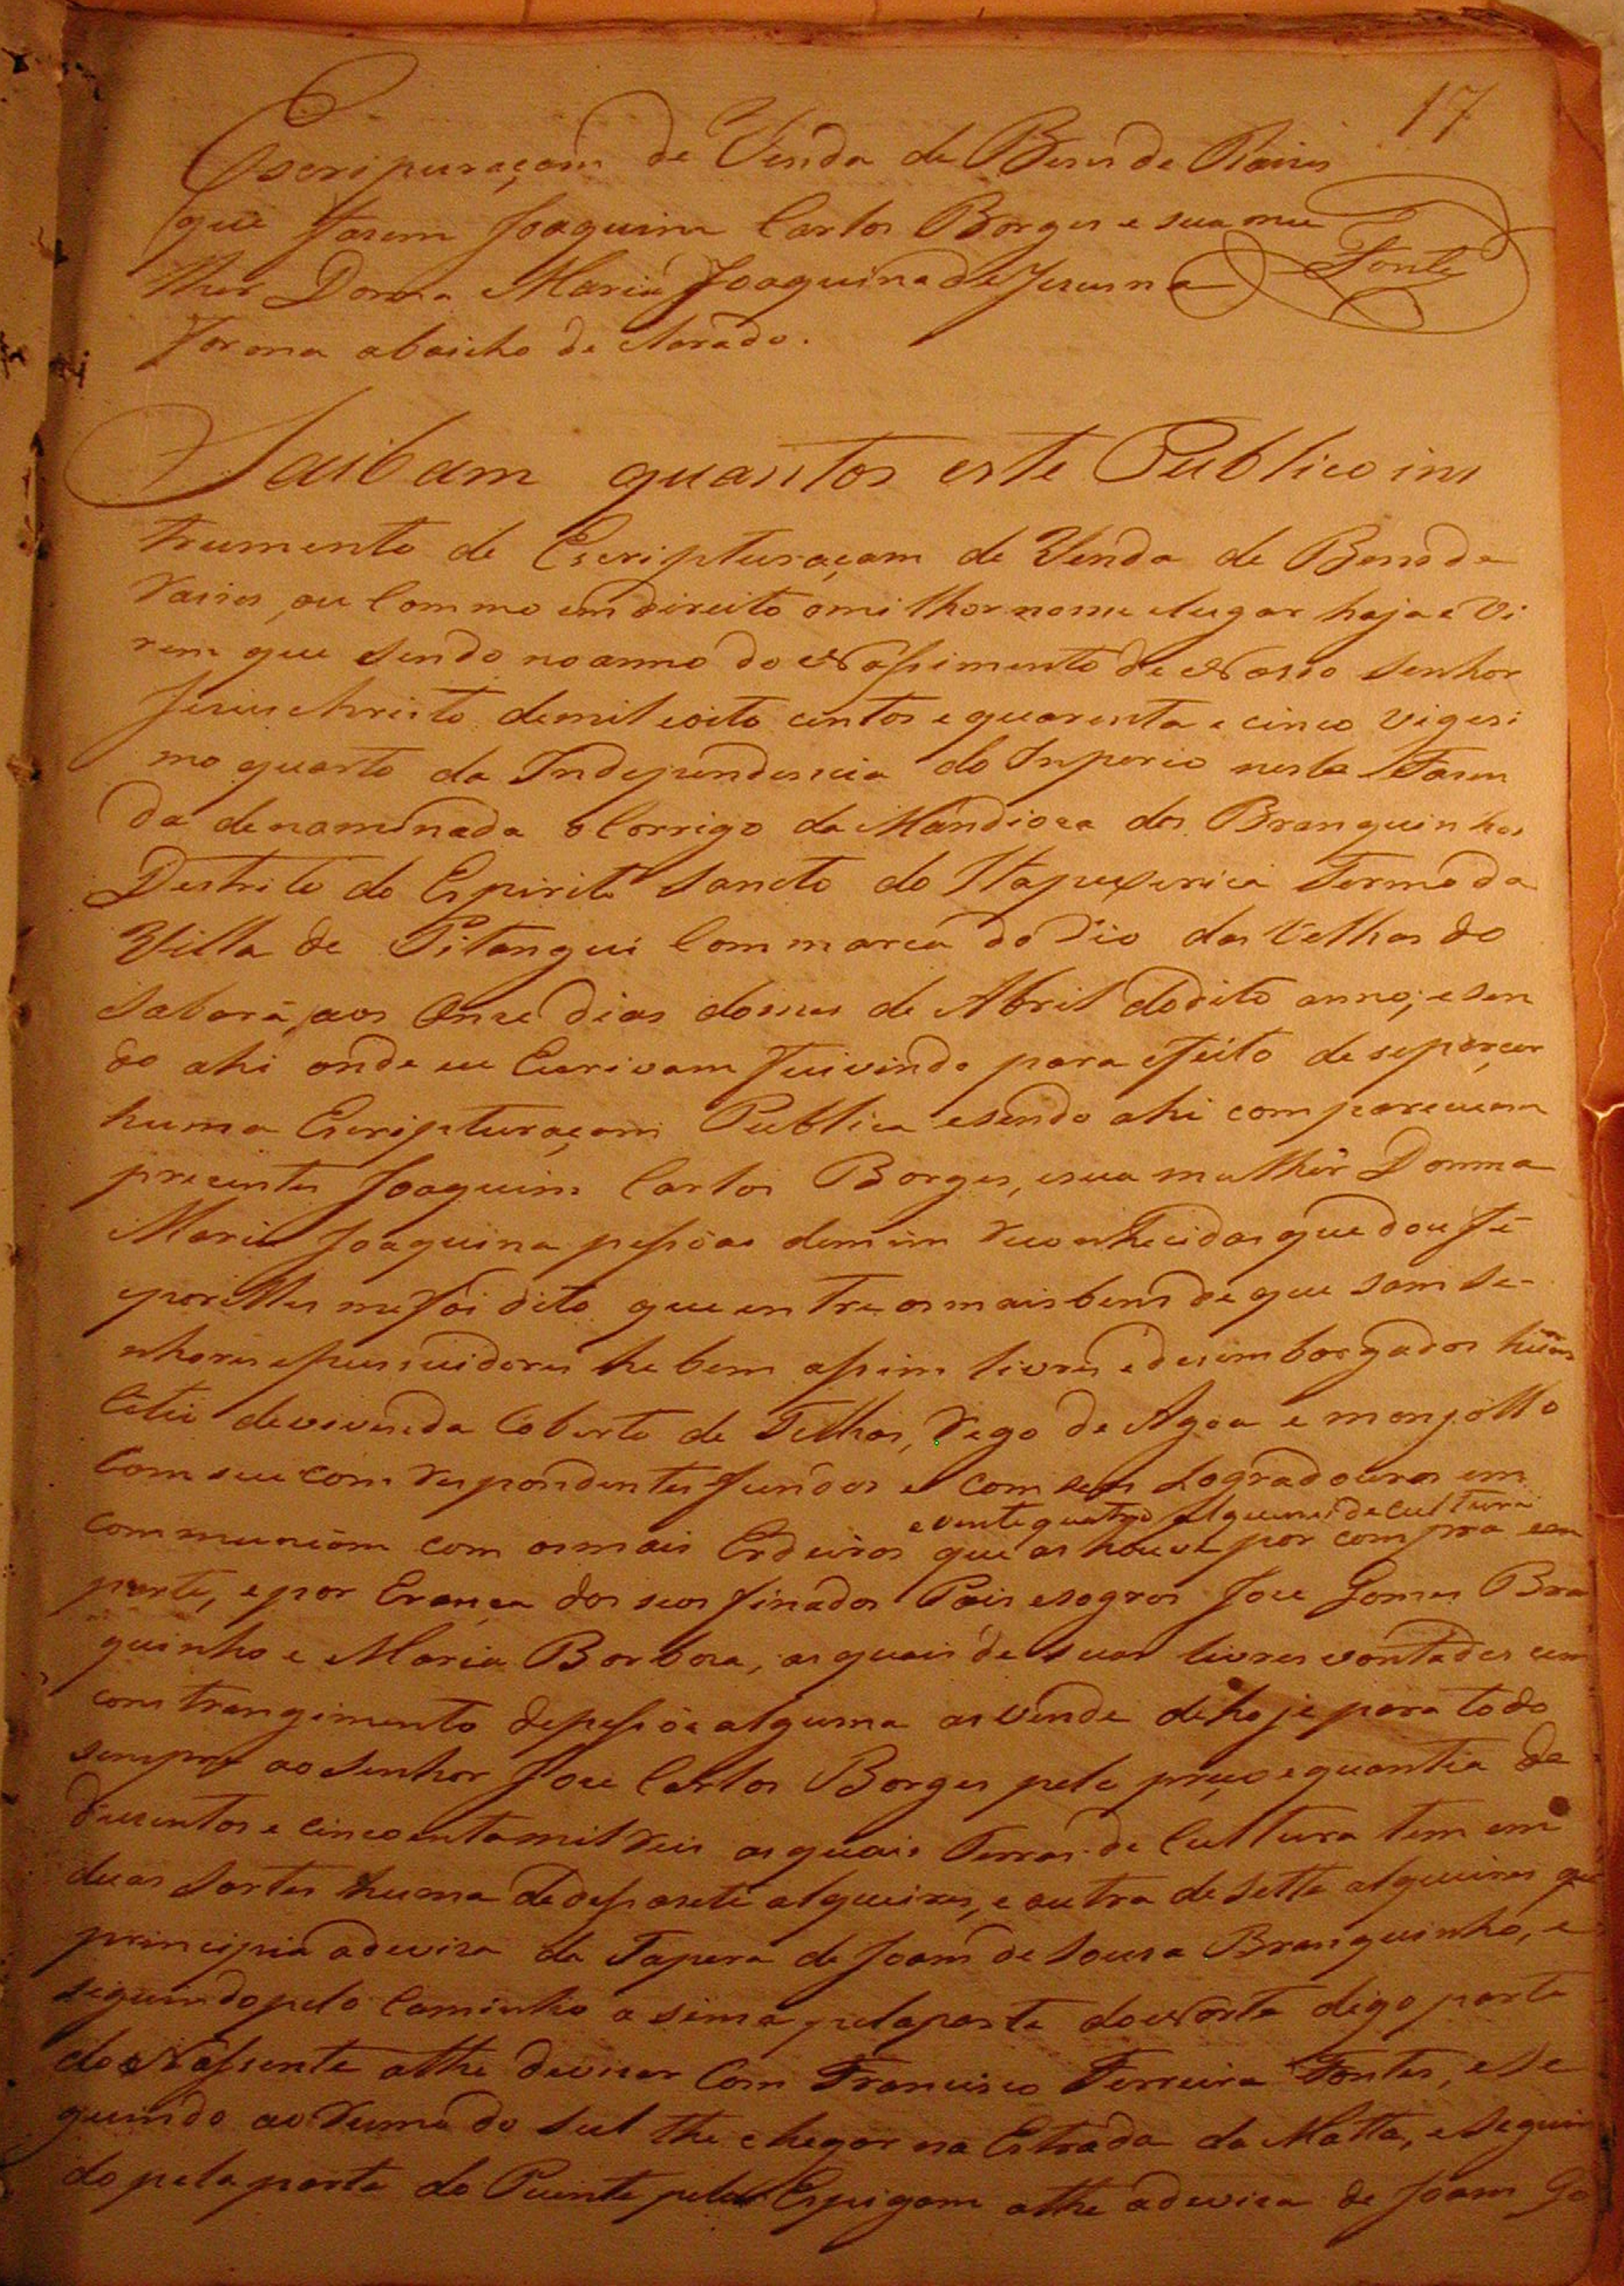 17
Escripuraçam de Venda de Bens de Raizes
que fasem Joaquim Carlos Borges e sua mu
lher Donna Maria Joaquina de Jesus na
Fonte
forma abaicho de clarado.
Saibam quantos este Publico ins
trumento de Escripturaçam de Venda de Bens de
raizes, ou Commo em direito o milhor nome e lugar haja e vi
rem que sendo no anno do Nassimento de Nosso Senhor
Jesus christo de mil eoito centos e quarenta e cinco vigesi
mo quarto da Independencia do Inperio nesta Fasen
da denaminada o Corrigo da Mandioca dos Branquinhos
Destrito do Espirito Sancto do Itapeserica Termo da
Villa de Pitangui Commarca do Rio das Velhas do
Sabará, aos Onze dias domes de Abril do dito anno; e sen
do ahi onde eu Escrivam fui vindo para efeito de se
huma Escripturaçam Publica esendo ahi compareceram
presentes Joaquim Carlos Borges, esua mulhêr Donna
Maria Joaquina pessoas demim reconhecidas que dou fé
eporelles me foi dito que entre os mais bens de que sam se-
nhores epussuidores he bem assim livres e desembargados huns
Citio devivenda Coberto de Telhas, Rego de Agoa e monjollo
Com seu com respondentes fundos e com seus Logradouros em
e vente quatro Alqueires de cultura
communiam com osmais Erdeiros que as houve por compra em
parte, e por Erança dos seos finados Pais esogros Joze Gomes Bra
quinho e Maria Borboza, as quais de suas livres vontades cem
constrangimento depessôa alguma as vende dehoje para todo
sempre ao Senhor Joze Carlos Borges pelo preço e quantia de
duzentos e cincoentamil reis as quais Terras de Cultura tem em
duas Sortes huma dedessasete alqueires, e outra de Sette alqueires que
principia adeviza da Tapera de Joam de Souza Branquinho, e
seguindo pelo Caminho a sima pelaparte do Norte digo parte
do Nassente athe devizar Com Francisco Ferreira Fontes, e Se
guindo ao Rumo do Sul the chegar na Estrada da Matta, e Seguin
do pela parte do Puente pelo Espigam athe adeviza de Joam Go